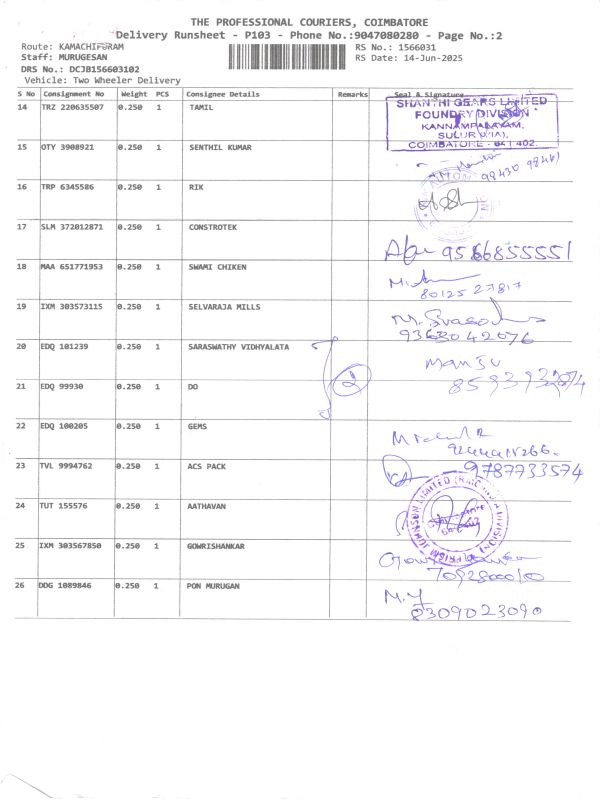 THE PROFESSIONAL COURIERS, COIMBATORE
Delivery Runsheet - P103 - Phone No.:9047080280 - Page No.:2
Route: KAMACHIPURAM
RS No.: 1566031
Staff: MURUGESAN
RS Date: 14-Jun-2025
DRS No.: DCJB156603102
Vehicle: Two Wheeler Delivery
S No Consignment No Weight PCS Consignee Details Remarks Seal & Signature
14 TRZ 220635507 0.250 1 TAMIL
SHANTHI GEARS LIMITED
FOUNDRY DIVISION
KANNAMPALAYAM,
SULUR (VIA),
COIMBATORE - 641 402.
15 OTY 3908921 0.250 1 SENTHIL KUMAR
98430 98441
16 TRP 6345586 0.250 1 RIK
17 SLM 372012871 0.250 1 CONSTROTEK
9566855551
18 MAA 651771953 0.250 1 SWAMI CHIKEN
80125 27817
19 IXM 303573115 0.250 1 SELVARAJA MILLS
9363042076
20 EDQ 101239 0.250 1 SARASWATHY VIDHYALATA
2
Manju
21 EDQ 99930 0.250 1 DO
22 EDQ 100205 0.250 1 GEMS
23 TVL 9994762 0.250 1 ACS PACK
9787733574
24 TUT 155576 0.250 1 AATHAVAN
25 IXM 303567850 0.250 1 GOWRISHANKAR
26 DDG 1089846 0.250 1 PON MURUGAN
M.Y
8309023090